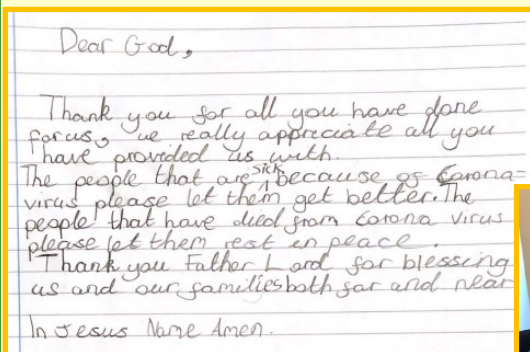 Dear God,
Thank you for all you have done
for us, we really appreciate all you
have provided us with.
The people that are sick because of Corona-
virus please let them get better. The
people that have died from Corona Virus
please let them rest in peace.
Thank you Father Lord for blessing
us and our families both far and near
In Jesus Name Amen.